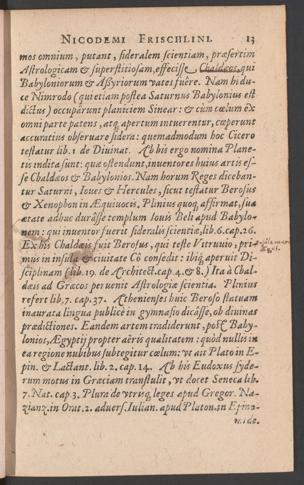 NICODEMI FRISCHLINI. 13
mos omnium, putant, sideralem scientiam, præsertim
Astrologicam & superstitiosam, effecisse Chaldæos, qui
Babyloniorum & Aßyriorum vates fuêre. Nam hi du-
ce Nimrodo (qui etiam postea Saturnus Babylonius est
dictus) occupârunt planiciem Sinear: & cùm cœlum ex
omni parte patens, atq; apertum intuerentur, cœperunt
accuratius observare sidera: quemadmodum hoc Cicero
testatur lib. 1. de Divinat. Ab his ergo nomina Plane-
tis indita sunt: quæ ostendunt, inventores huius artis es-
se Chaldæos & Babylonios. Nam horum Reges diceban-
tur Saturni, Ioves & Hercules, sicut testatur Berosus
& Xenophon in Æquivocis. Plinius quoq; affirmat, sua
ætate adhuc durâsse templum Iovis Beli apud Babylo-
nem: qui inventor fuerit sideralis scientiæ, lib. 6. cap. 26.
Ex his Chaldæis fuit Berosus, qui teste Vitruvio, pri-
mus in insula & civitate Cô consedit: ibiq; aperuit Di-
sciplinam (lib. 19. de Architect. cap. 4. & 8.) Ita à Chal-
dæis ad Græcos pervenit Astrologiæ scientia. Plinius
refert lib. 7. cap. 37. Athenienses huic Beroso statuam
inaurata lingua publicè in gymnasio dicâsse, ob divinas
prædictiones. Eandem artem tradiderunt, post Baby-
lonios, Ægyptij propter aëris qualitatem: quòd nullis in
ea regione nubibus subtegitur cœlum: vt ait Plato in E-
pin. & Lactant. lib. 2. cap. 14. Ab his Eudoxus syde-
rum motus in Græciam transtulit, vt docet Seneca lib.
7. Nat. cap. 3. Plura de vtrisq; leges apud Gregor. Na-
zianz. in Orat. 2. advers. Iulian. apud Platon. in Epino-